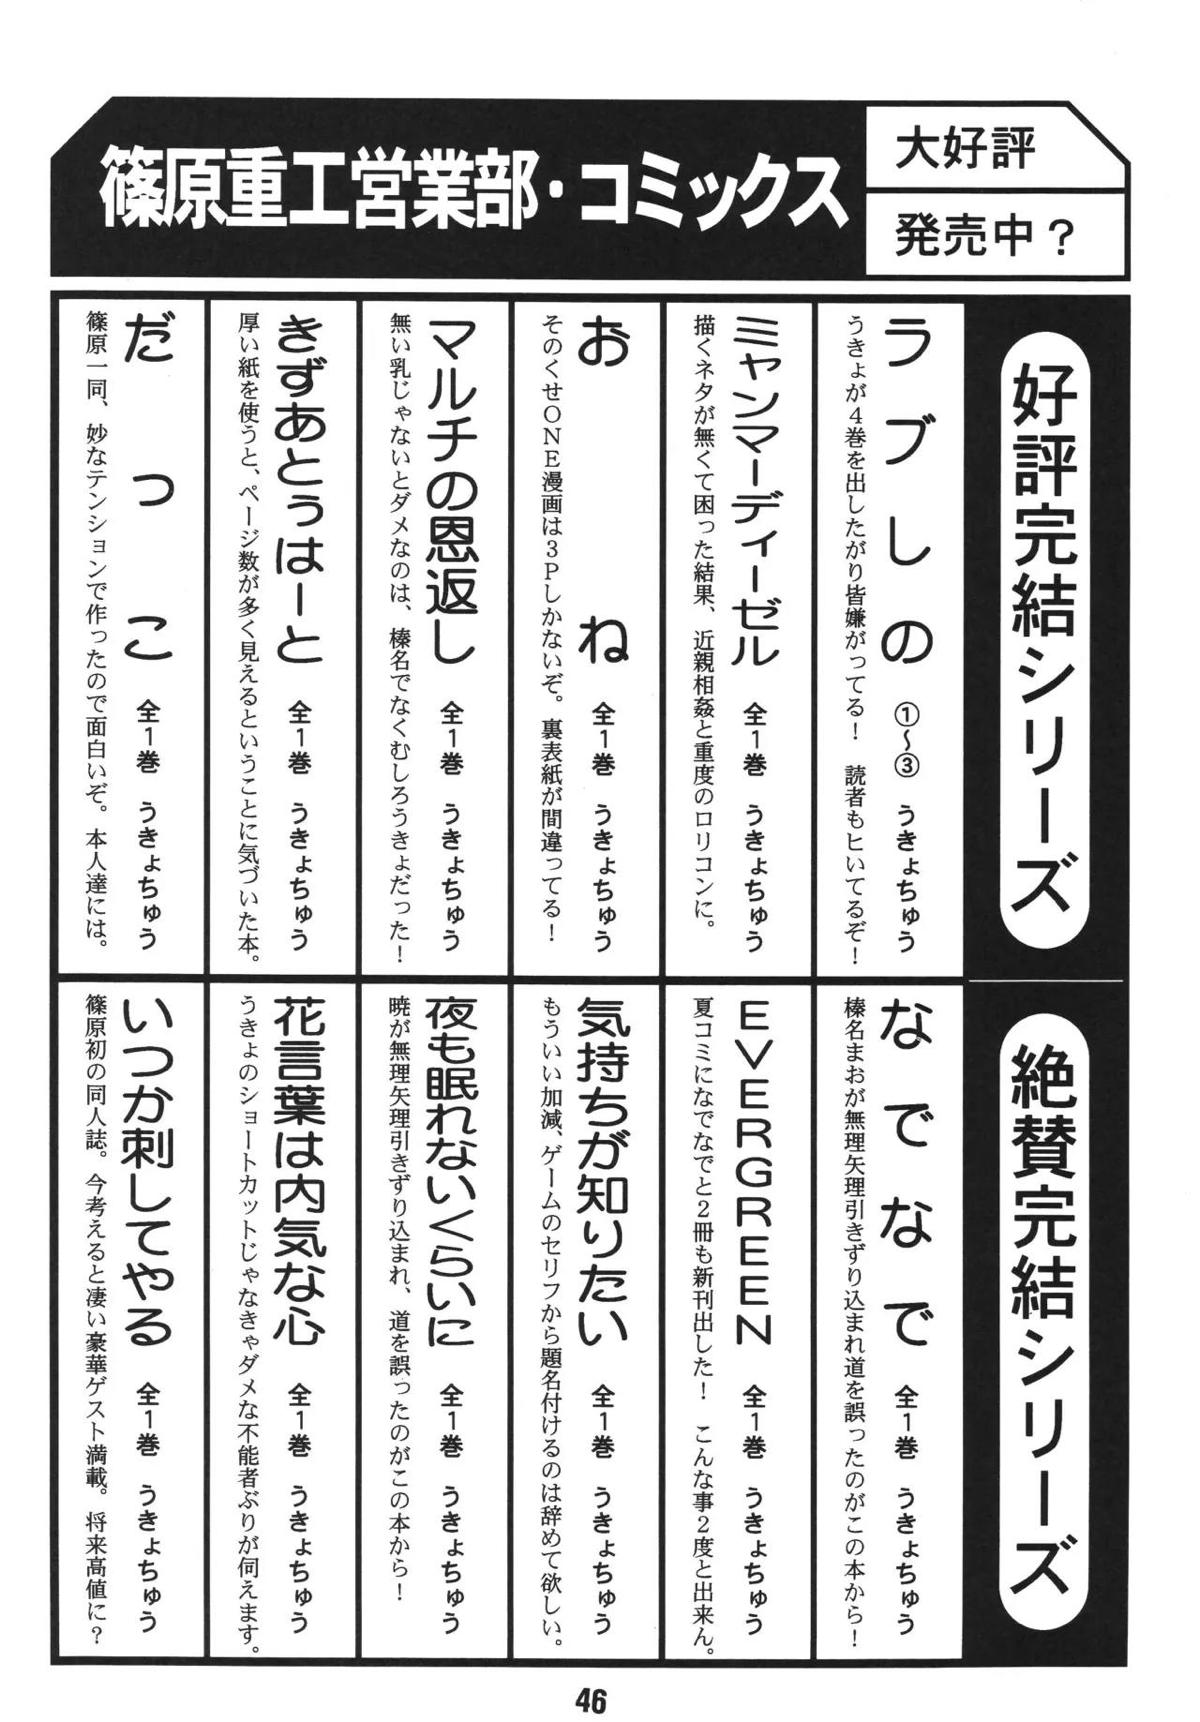 篠原重工営業部・コミックス
大好評
発売中?
好評完結シリーズ
ラブしの ①〜③ うきょちゅう
うきょが4巻を出したがり皆嫌がってる! 読者もヒいてるぞ!
ミャンマーディーゼル 全1巻 うきょちゅう
描くネタが無くて困った結果、近親相姦と重度のロリコンに。
おね 全1巻 うきょちゅう
そのくせONE漫画は3Pしかないぞ。裏表紙が間違ってる!
マルチの恩返し 全1巻 うきょちゅう
無い乳じゃないとダメなのは、榛名でなくむしろうきょだった!
きずあとぅはーと 全1巻 うきょちゅう
厚い紙を使うと、ページ数が多く見えるということに気づいた本。
だっこ 全1巻 うきょちゅう
篠原一同、妙なテンションで作ったので面白いぞ。本人達には。
絶賛完結シリーズ
なでなで 全1巻 うきょちゅう
榛名まおが無理矢理引きずり込まれ道を誤ったのがこの本から!
EVERGREEN 全1巻 うきょちゅう
夏コミになでなでと2冊も新刊出した! こんな事2度と出来ん。
気持ちが知りたい 全1巻 うきょちゅう
もういい加減、ゲームのセリフから題名付けるのは辞めて欲しい。
夜も眠れないくらいに 全1巻 うきょちゅう
暁が無理矢理引きずり込まれ、道を誤ったのがこの本から!
花言葉は内気な心 全1巻 うきょちゅう
うきょのショートカットじゃなきゃダメな不能者ぶりが伺えます。
いつか刺してやる 全1巻 うきょちゅう
篠原初の同人誌。今考えると凄い豪華ゲスト満載。将来高値に?
46